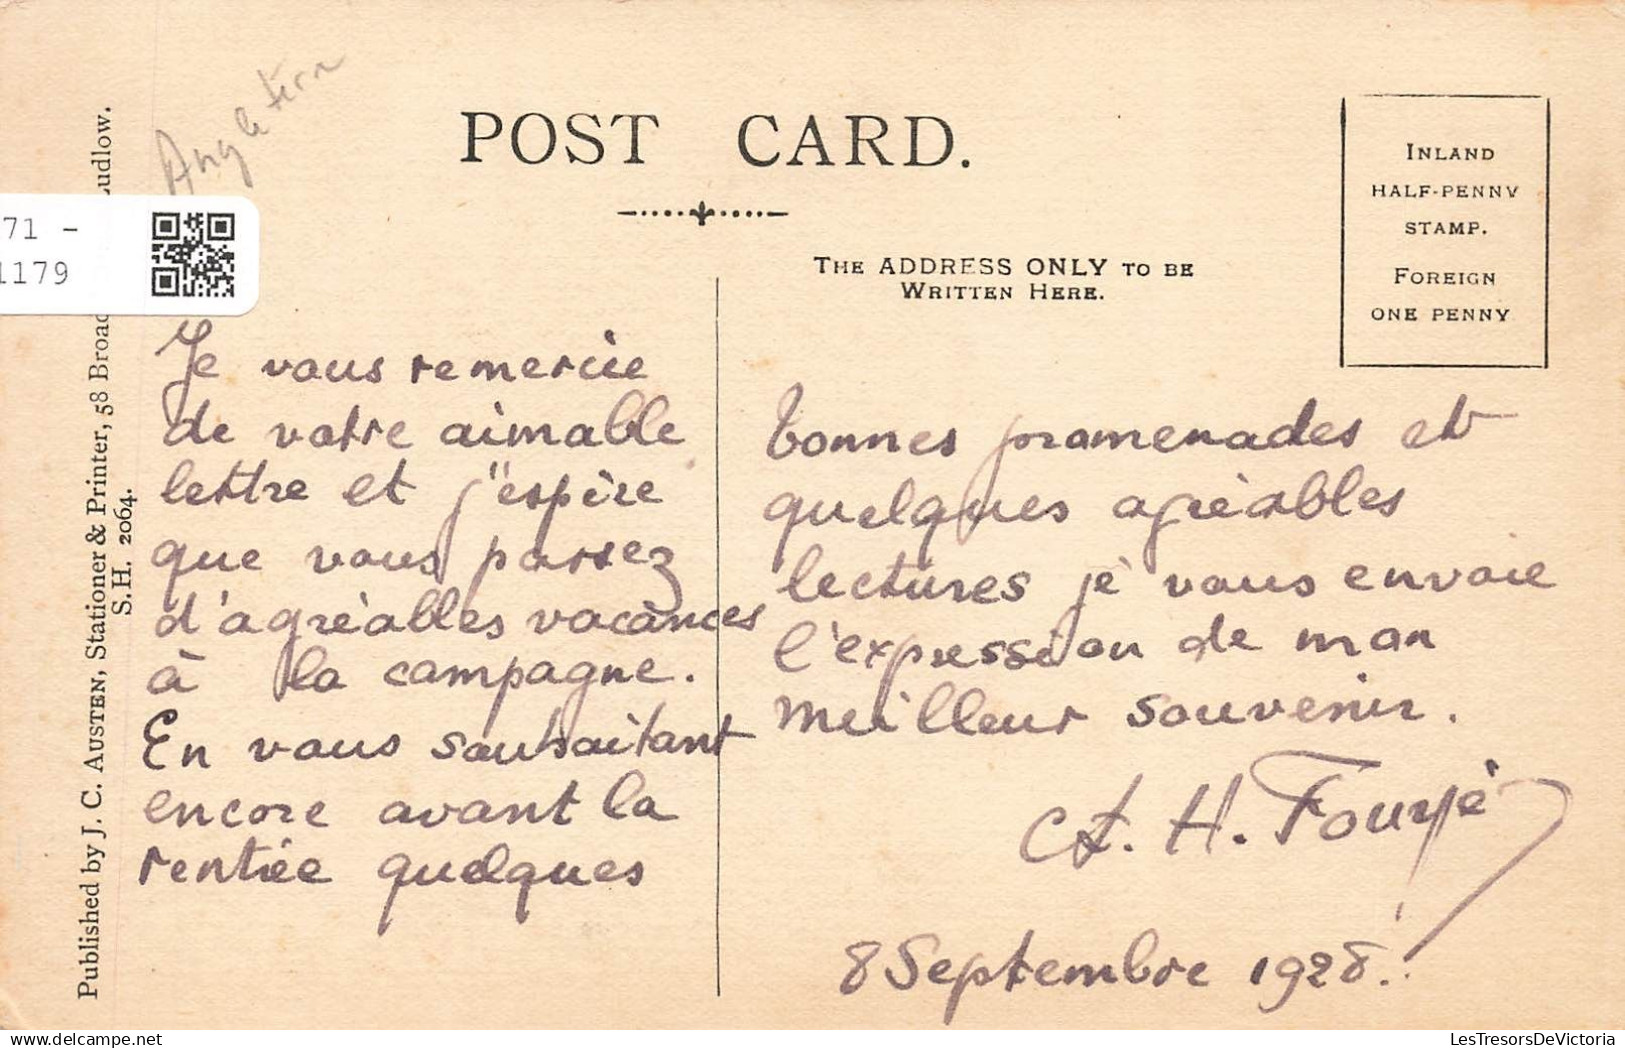 Angleterre
POST CARD.
INLAND
HALF-PENNY
STAMP.
FOREIGN
ONE PENNY
THE ADDRESS ONLY TO BE
WRITTEN HERE.
71 -
1179
Published by J. C. AUSTEN, Stationer & Printer, 58 Broad Ludlow.
S.H. 2064.
Je vous remercie
de votre aimable
lettre et j'espère
que vous passez
d'agréables vacances
à la campagne.
En vous souhaitant
encore avant la
rentrée quelques
bonnes promenades et
quelques agréables
lectures je vous envoie
l'expression de mon
meilleur souvenir.
A. H. Fouyé
8 Septembre 1928.
LesTresorsDeVictoria